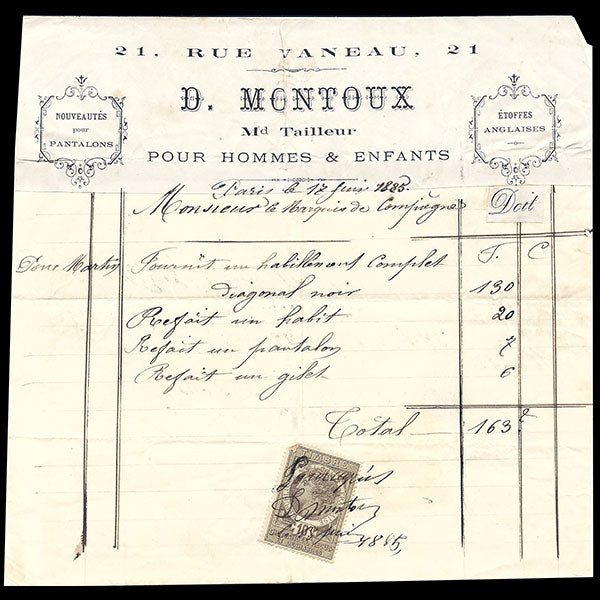 21, RUE VANEAU, 21
D. MONTOUX
Md Tailleur
POUR HOMMES & ENFANTS
NOUVEAUTÉS
pour
PANTALONS
ÉTOFFES
ANGLAISES
Paris le 12 Juin 1885.
Monsieur le Marquis de Compiègne Doit
F. C
Pour Martin Fournit un habillement Complet
diagonal noir 130
Refait un habit 20
Refait un pantalon 7
Refait un gilet 6
Total 163
1885,